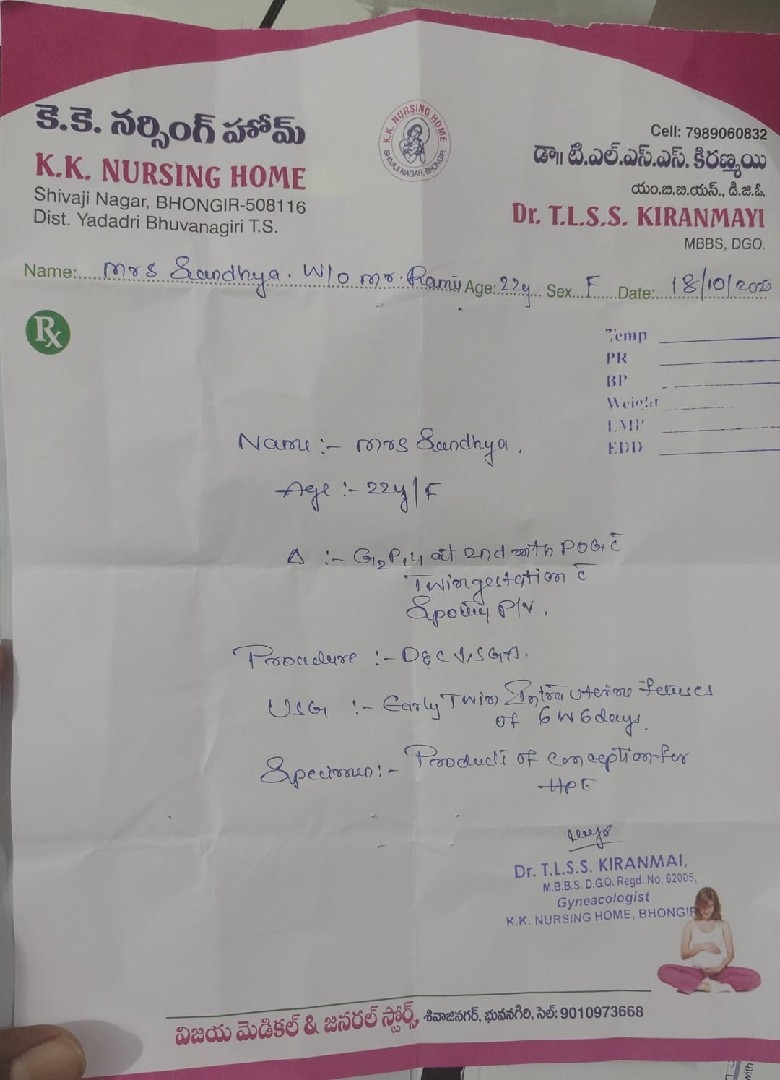 కె.కె. నర్సింగ్ హోమ్
K.K. NURSING HOME
Shivaji Nagar, BHONGIR-508116
Dist. Yadadri Bhuvanagiri T.S.
K.K. NURSING HOME
SHIVAJI NAGAR, BHONGIR
Cell: 7989060832
డా॥ టి.ఎల్.ఎస్.ఎస్. కిరణ్మయి
యం.బి.బి.యస్., డి.జి.ఓ.
Dr. T.L.S.S. KIRANMAYI
MBBS, DGO.
Name: Mrs Sandhya. W/o Mr. Ramu Age: 22y Sex F Date: 18/10/2020
Rx
Temp
PR
BP
Weight
LMP
EDD
Name :- Mrs Sandhya.
Age :- 22y/F
Δ :- G2P1L1 at 2nd month POG c̄
Twin gestation c̄
Spotting P/V.
Procedure :- D&C
USG :- Early Twin Intra uterine fetuses
of 6W 6days.
Specimen :- Product of conception for
HPE
Dr. T.L.S.S. KIRANMAI,
M.B.B.S. D.G.O. Regd. No. 62005,
Gyneacologist
K.K. NURSING HOME, BHONGIR
విజయ మెడికల్ & జనరల్ స్టోర్స్, శివాజినగర్, భువనగిరి, సెల్: 9010973668